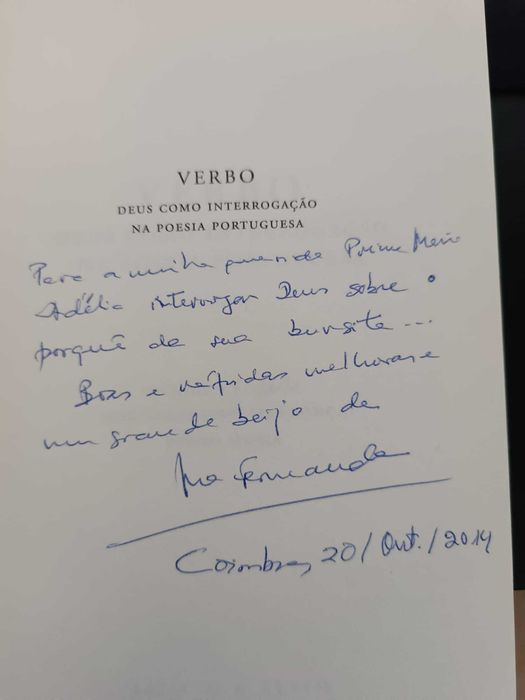 VERBO
DEUS COMO INTERROGAÇÃO
NA POESIA PORTUGUESA
Para a minha querida Prima Maria
Adélia interrogar Deus sobre o
porquê da sua bursite...
Boas e rápidas melhoras e
um grande beijo da
Fernanda
Coimbra, 20/Out./2014